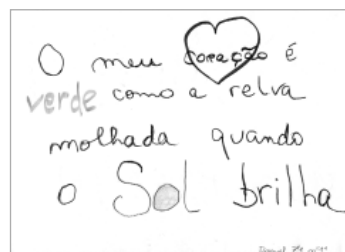 O meu coração é
verde como a relva
molhada quando
o Sol brilha